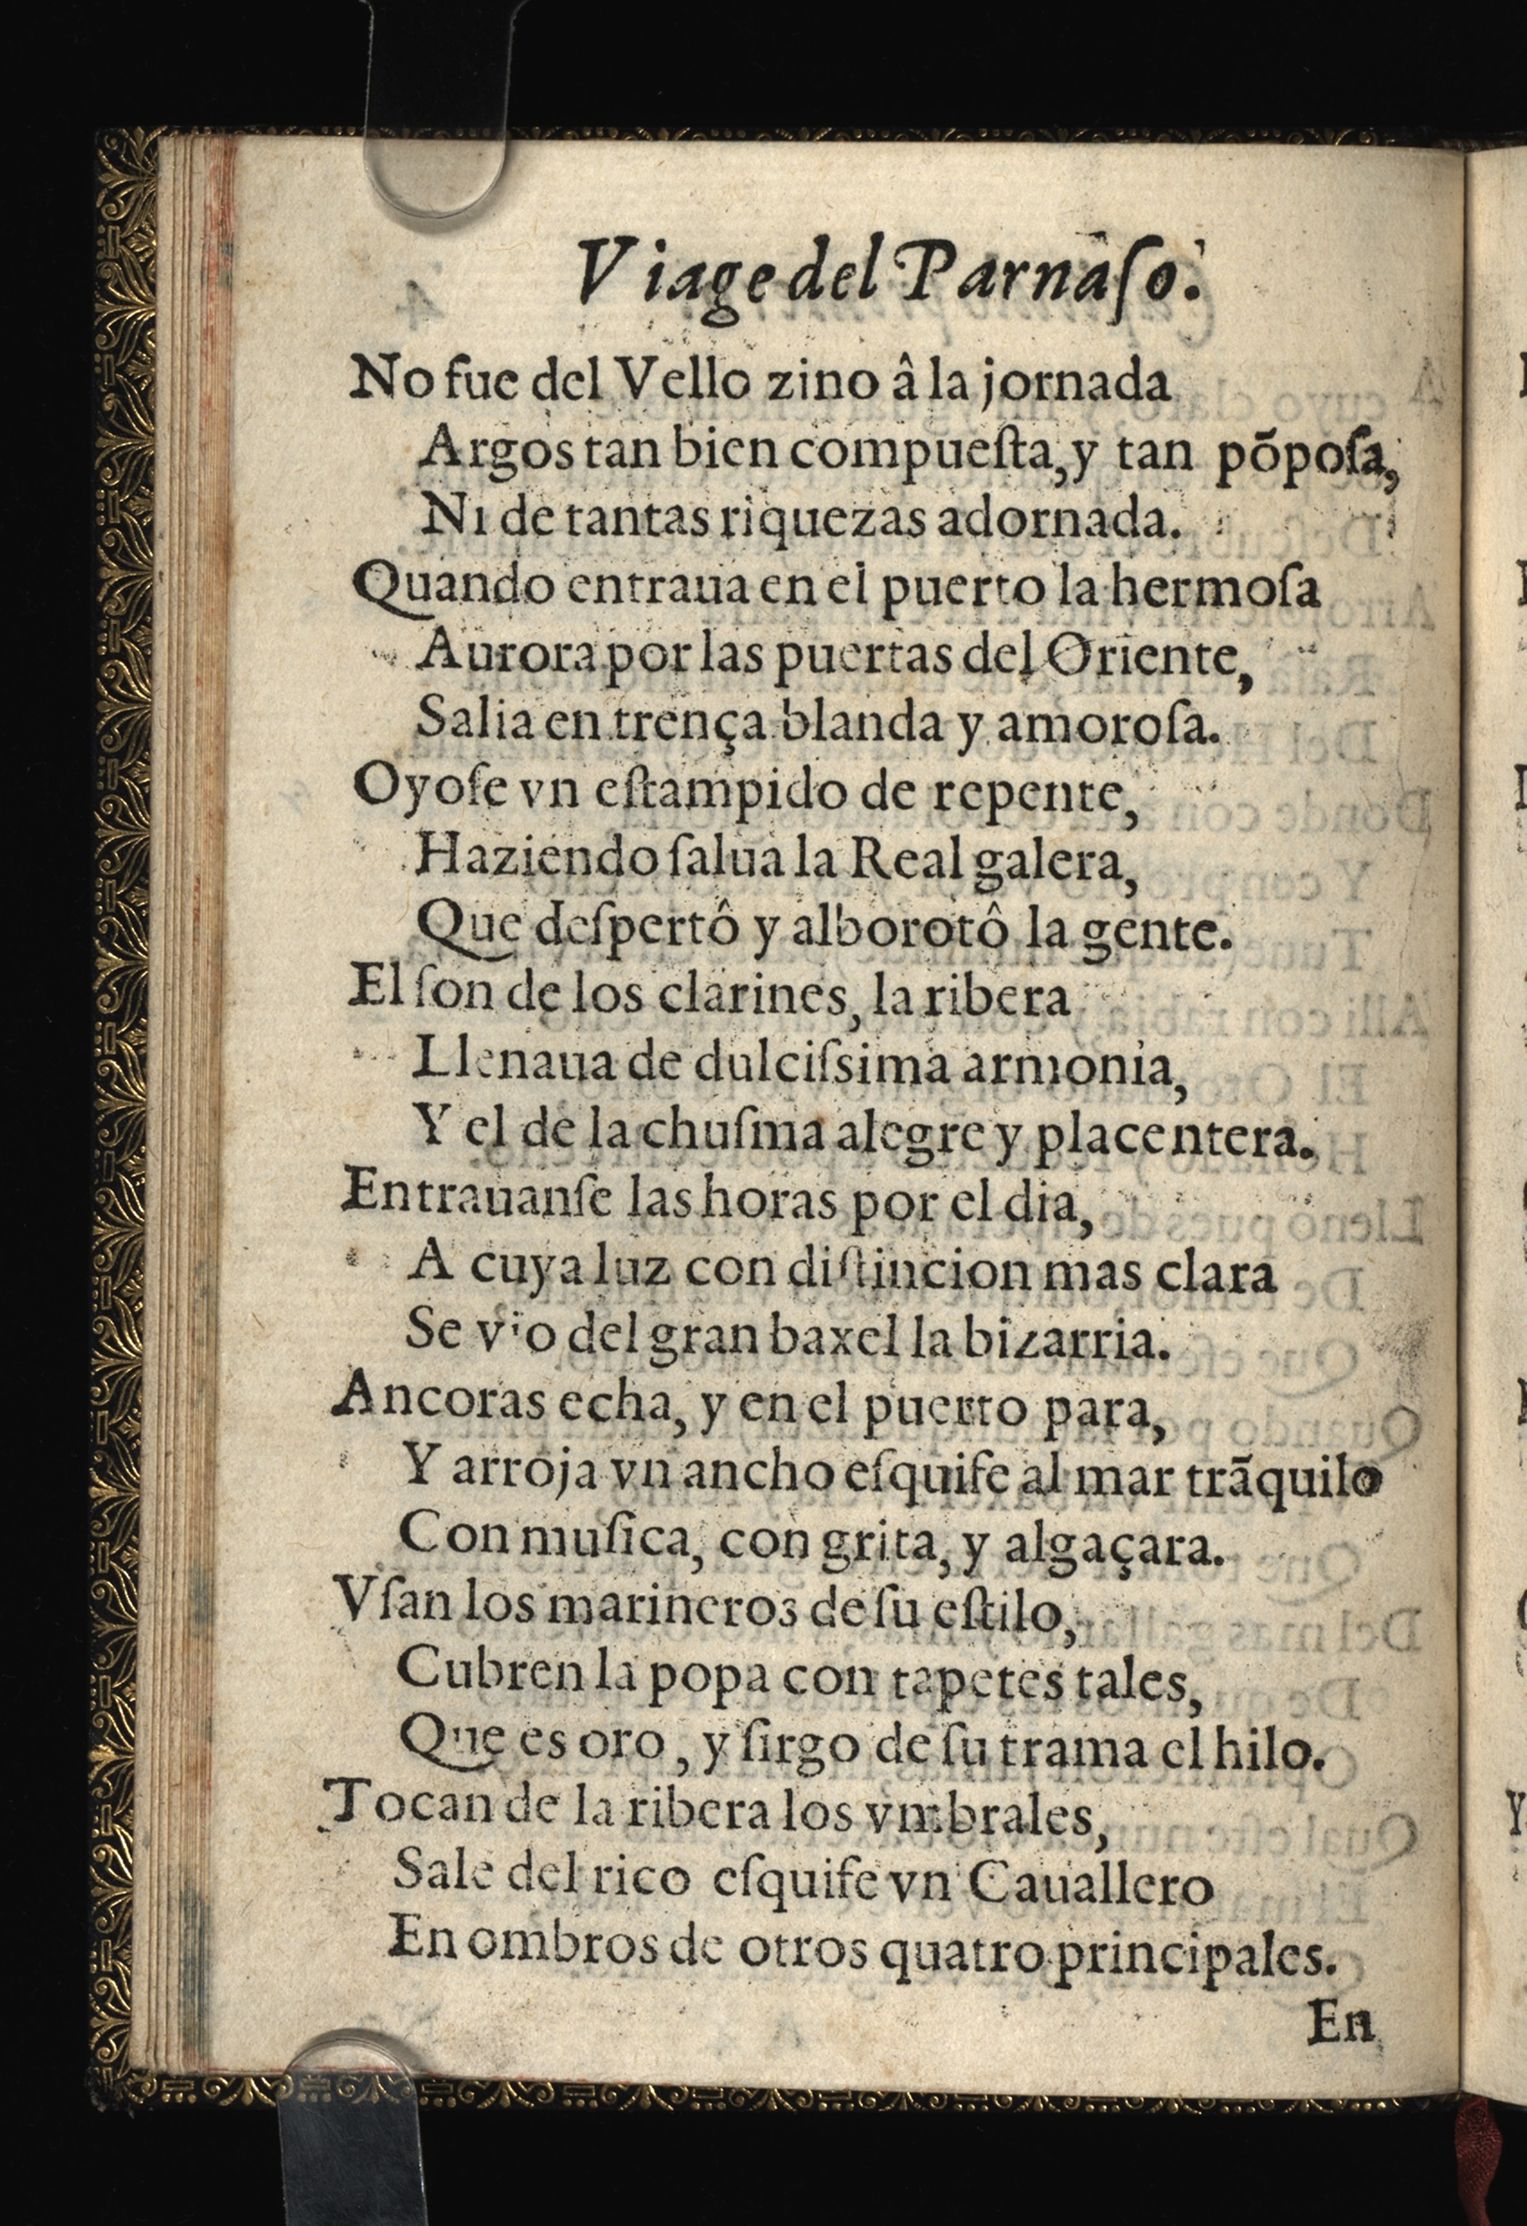 Viage del Parnaſo.
No fue del Vello zino â la jornada
Argos tan bien compueſta, y tan põpoſa,
Ni de tantas riquezas adornada.
Quando entraua en el puerto la hermoſa
Aurora por las puertas del Oriente,
Salia en trença blanda y amoroſa.
Oyoſe vn eſtampido de repente,
Haziendo ſalua la Real galera,
Que deſpertô y alborotô la gente.
El ſon de los clarines, la ribera
Llenaua de dulciſsima armonia,
Y el de la chuſma alegre y placentera.
Entrauanſe las horas por el dia,
A cuya luz con diſtincion mas clara
Se vio del gran baxel la bizarria.
Ancoras echa, y en el puerto para,
Y arroja vn ancho eſquife al mar trãquilo
Con muſica, con grita, y algaçara.
Vſan los marineros de ſu eſtilo,
Cubren la popa con tapetes tales,
Que es oro, y ſirgo de ſu trama el hilo.
Tocan de la ribera los vmbrales,
Sale del rico eſquife vn Cauallero
En ombros de otros quatro principales.
En